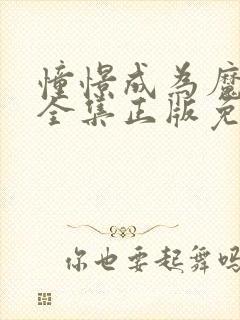 憧憬成为魔
全集正版免
你也要起舞吗